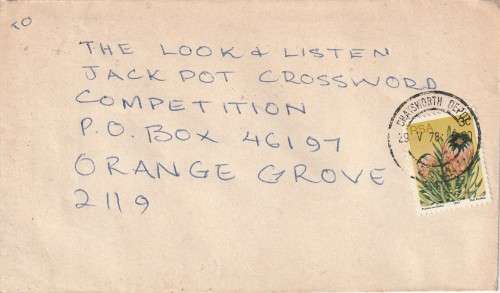 TO
THE LOOK & LISTEN
JACK POT CROSSWORD
COMPETITION
P.O. BOX 46197
ORANGE GROVE
2119
CHATSWORTH DEPOT
29 V 78
RSA